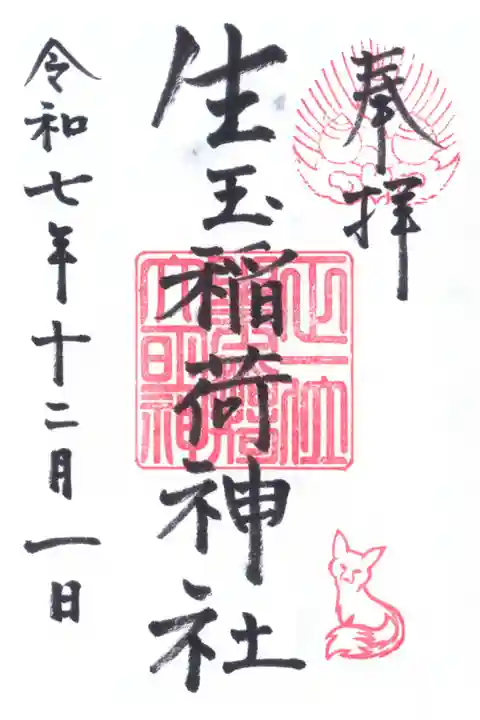 奉拝
生玉稲荷神社
令和七年十二月一日